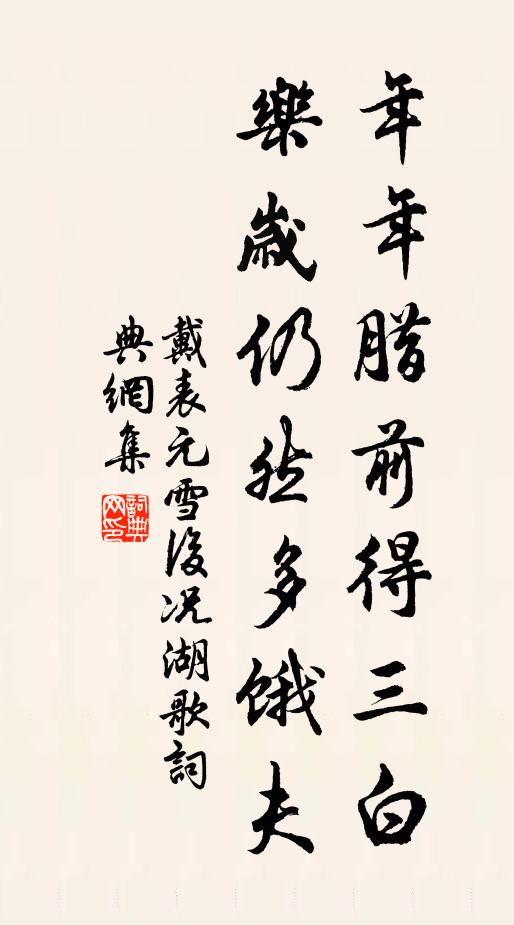 年年腊前得三白
樂歲仍然多餓夫
戴表元雪後况湖歌詞
典網集
詞典
网印